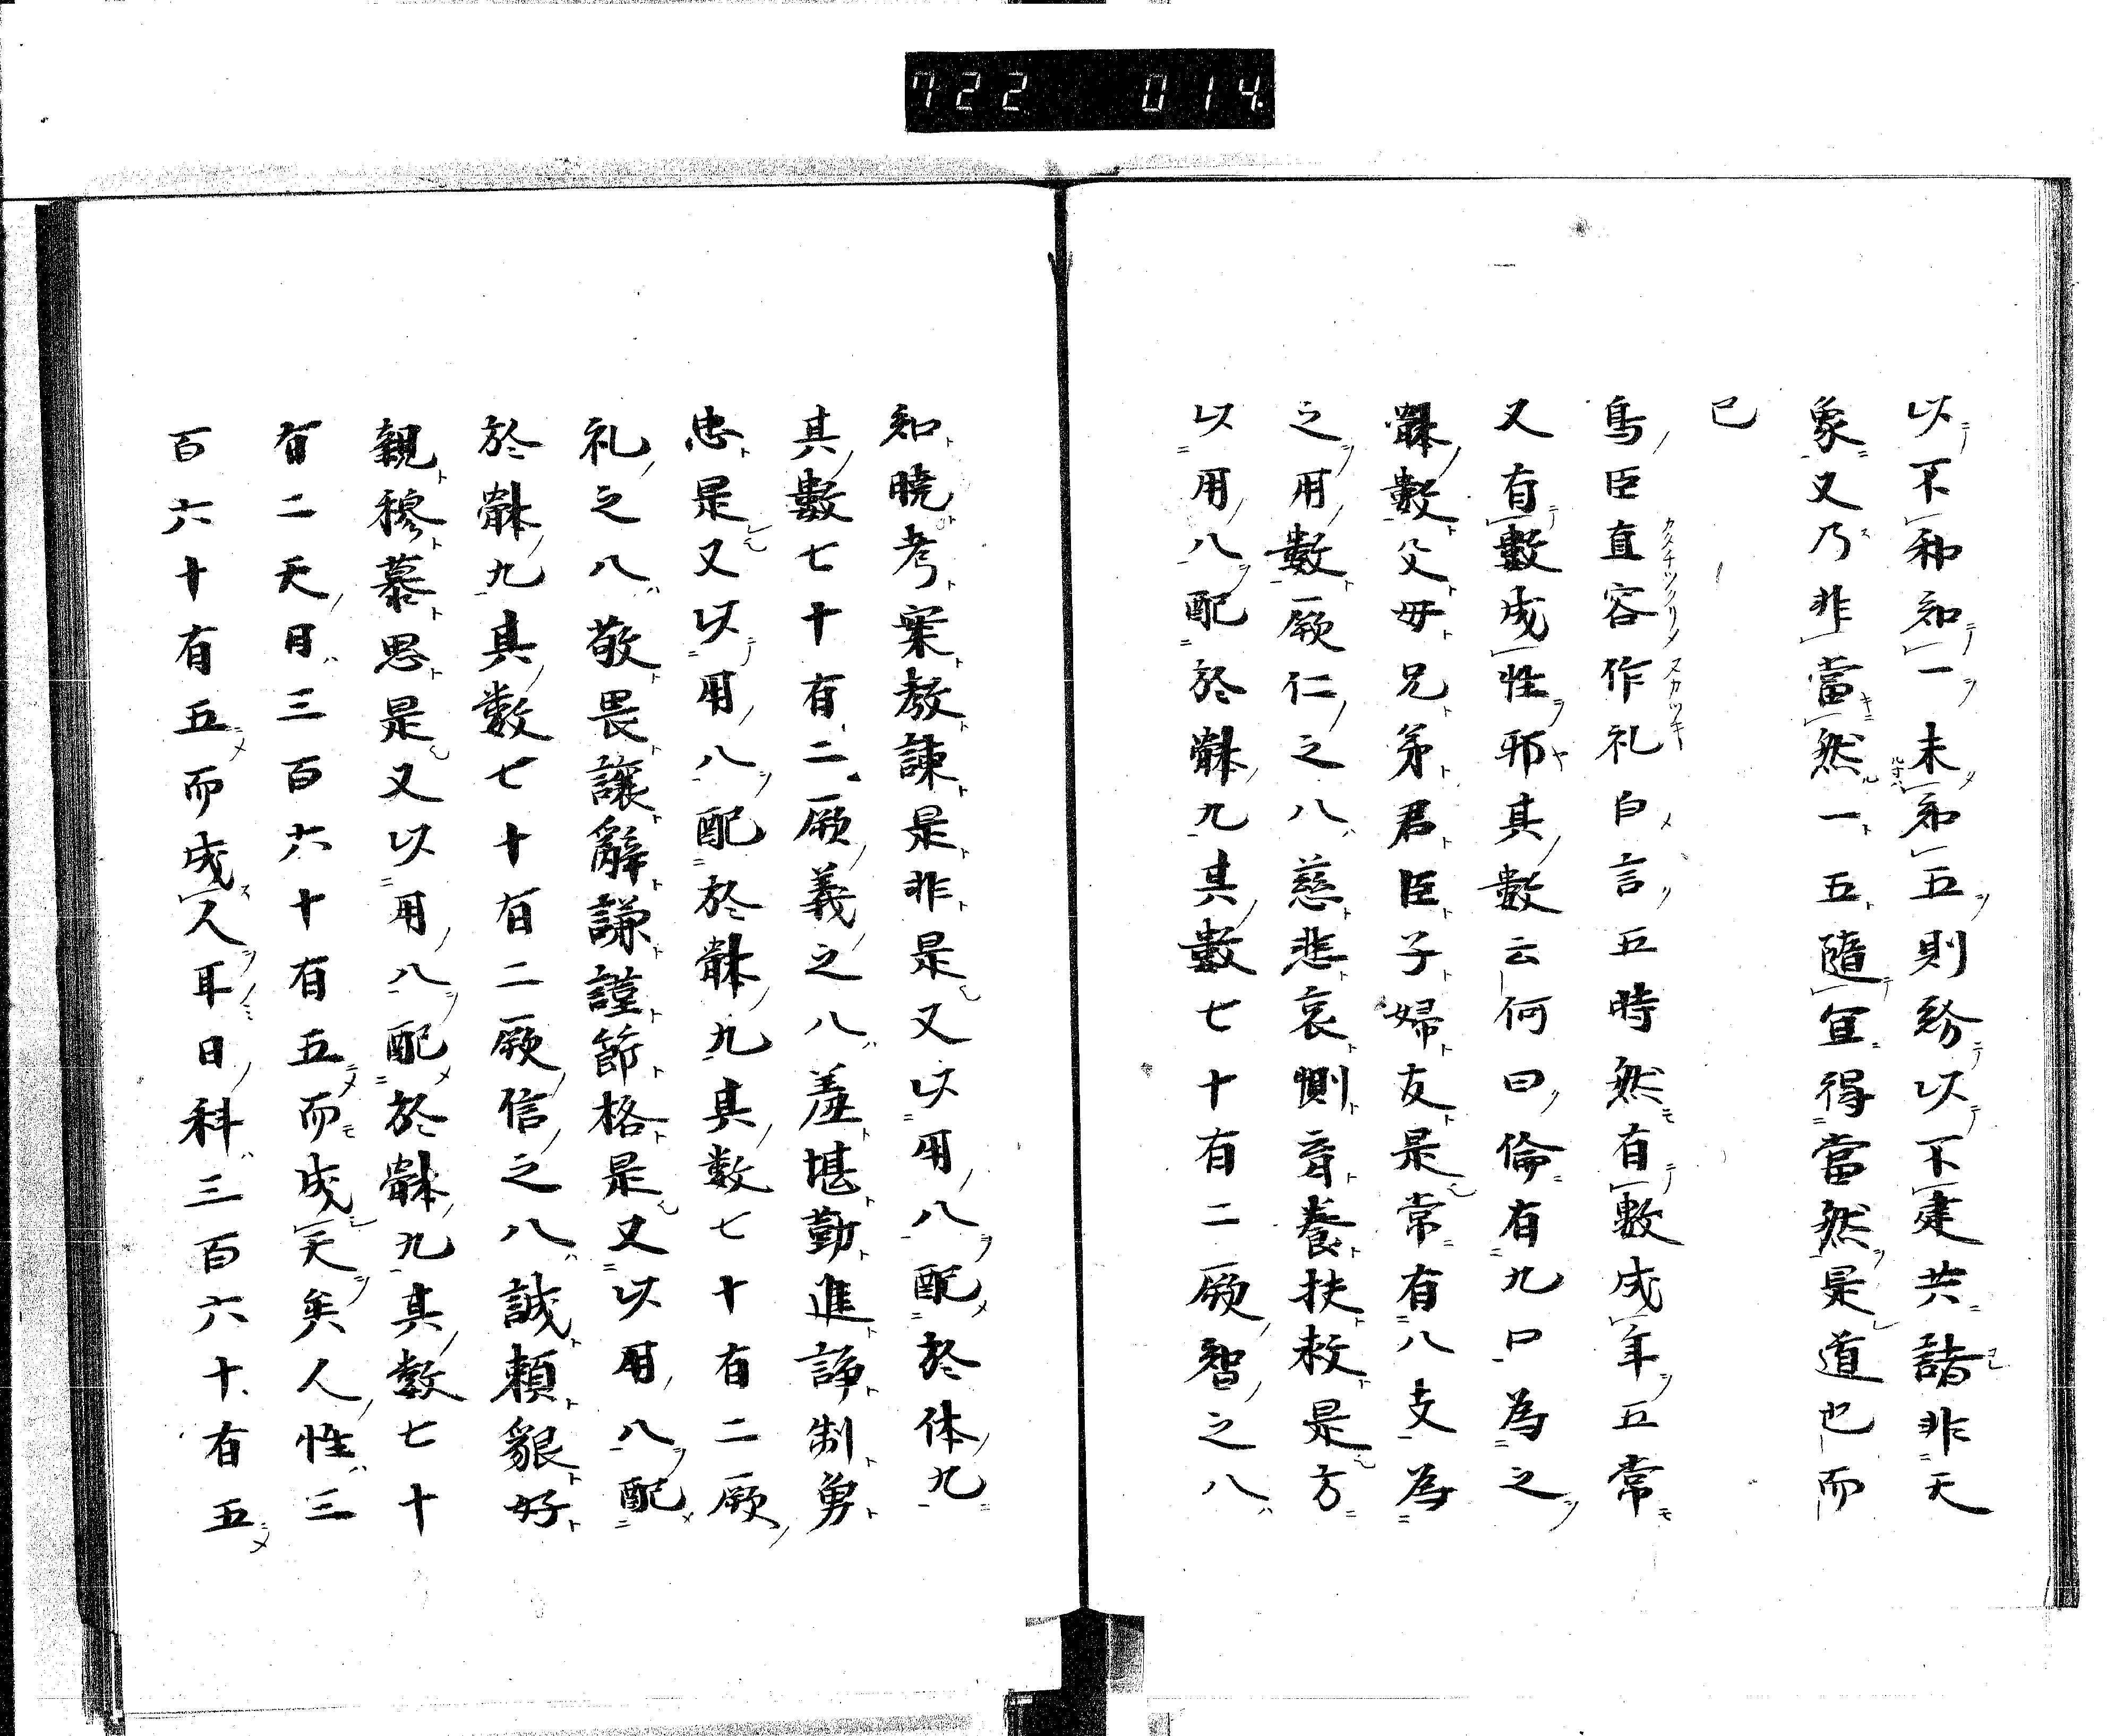 722 014.
以不和和一未和五則紛以不建共諸非天
象又乃非當然一五随宜得當然是道也而
已
鳥臣直容作礼白言五時然有數成年五常
又有數成性邪其數云何曰倫有九曰為之
軆數父母兄弟君臣子婦友是常有八支為
之用數厥仁之八慈悲哀惻育養扶救是方
以用八配於軆九其數七十有二厥智之八
知曉考察教諫是非是又以用八配於体九
其數七十有二厥義之八羞堪勤進諍制勇
忠是又以用八配於軆九其数七十有二厥
礼之八敬畏讓辭謙謹節格是又以用八配
於軆九其數七十有二厥信之八誠賴貇好
親穆慕思是又以用八配於軆九其數七十
有二天日三百六十有五而成天矣人性三
百六十有五而成人耳日科三百六十有五